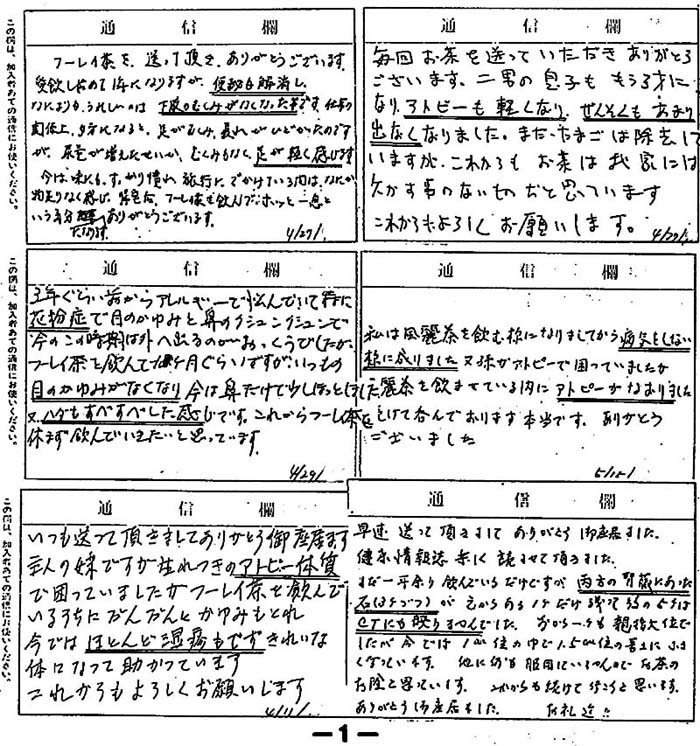 通信欄
フーレイ茶を、送って頂き、ありがとうございます。
愛飲し始めて1年になりますが、便秘も解消し、
なによりも、うれしいのは下腹のむくみがなくなった事です。仕事の
関係上、夕方になると、足がむくみ、疲れがひどかったのです
が、尿量が増えたせいか、むくみもなく、足が軽く感じます
今は、味にも、す、かり慣れ、旅行に、でかけている間は、なにか
物足りなく感じ、フーレイ茶を飲んで、ホッと一息と
いう気分
ありがとうございます。
4/27
この欄は、加入者あての通信にお使いください。
通信欄
毎回お茶を送っていただきありがとう
ございます。二男の息子も もう才に
なり、アトピーも軽くなり、ぜんそくもあまり
出なくなりました。まだ、たまごは除去して
いますが、これからも お茶は我家には
欠かす事のないものだと思っています
これからもよろしくお願いします。
4/27
通信欄
3年ぐらい前からアレルギーで悩んでいて特に
花粉症で目のかゆみと鼻のグシュングシュンで
今のこの時期は外へ出るのがおっくうでしたが、
フーレイ茶を飲んでヶ月ぐらいですが、いつもの
目のかゆみがなくなり 今は鼻だけで少しほっとしました
又、ハダもすべすべした感じです。これからフーレイ茶を
休まず飲んでいきたいと思っています。
4/29
この欄は、加入者あての通信にお使いください。
通信欄
私は風麗茶を飲む様になりましてから病気をしない
様に成りました 又孫がアトピーで困っていましたが
麗茶を飲ませている内に アトピーがなおりました
呑んでおります 本当です。ありがとう
ございました
5/15
通信欄
いつも送って頂きましてありがとう御座居ます
主人の妹ですが生れつきのアトピー体質
で困っていましたがフーレイ茶を飲んで
いるうちにだんだんとかゆみもとれ
今ではほとんど湿疹も出ずきれいな
体になって助かっています
これからもよろしくお願いします
4/11
この欄は、加入者あての通信にお使いください。
通信欄
早速送って頂きまして ありがとう御座居ました。
健康情報誌 楽しく読ませて頂きました。
まだ一年余り飲んでいるだけですが、両方の腎臓にあった
石(はずつ)が 右からある1ケだけ残って 残りの5ケは
CTにも映りませんでした。 一ケも親指大位で
したが今では1cm位の中で1.5cm位の長さに小さ
くなっています。他に何も服用していませんので、お茶の
お陰と思っています。これからも続けて行こうと思います。
ありがとう御座居ました。 お礼迄
－1－